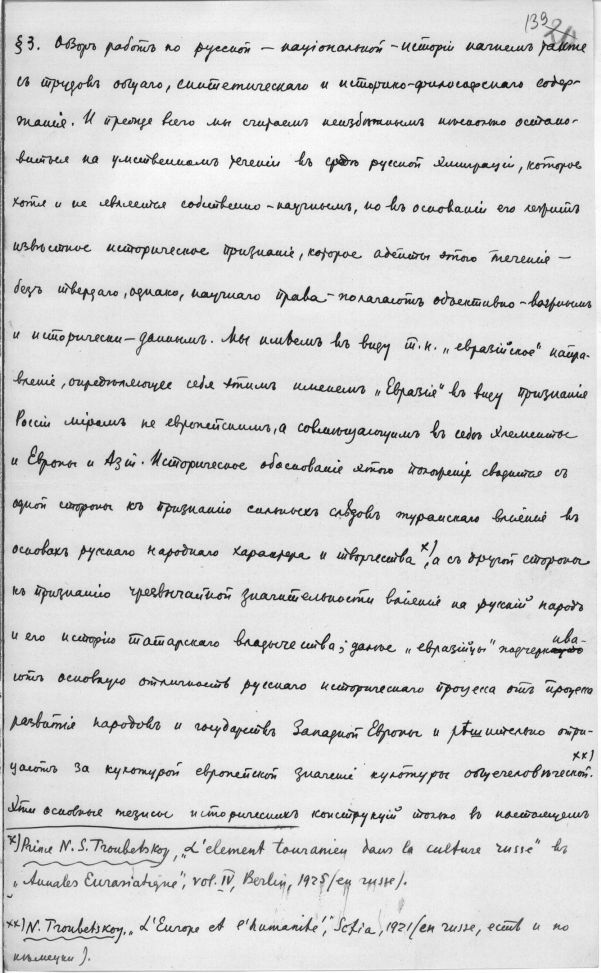 139
§3. Обзоръ работъ по русской – національной – исторіи начнемъ также
съ трудовъ общаго, синтетическаго и историко-философскаго содер-
жанія. И прежде всего мы считаемъ неизбѣжнымъ нѣсколько остано-
виться на умственномъ теченіи въ средѣ русской эмиграціи, которое
хотя и не является собственно-научнымъ, но въ основаніи его лежитъ
извѣстное историческое признаніе, которое адепты этого теченія –
безъ твердаго, однако, научнаго права – полагаютъ объективно-вѣрнымъ
и исторически-даннымъ. Мы имѣемъ въ виду т.н. „евразійское" напра-
вленіе, опредѣляющее себя этимъ именемъ „Евразія" въ виду признанія
Россіи міромъ не европейскимъ, а совмѣщающимъ въ себѣ элементы
и Европы и Азіи. Историческое обоснованіе этого положенія сводится съ
одной стороны къ признанію сильныхъ слѣдовъ туранскаго вліянія въ
основахъ русскаго народнаго характера и творчества x); а съ другой стороны
къ признанію чрезвычайной значительности вліянія на русскій народъ
и его исторію татарскаго владычества; далѣе „евразійцы" подчеркива-
ютъ основную отличность русскаго историческаго процесса отъ процесса
развитія народовъ и государствъ Западной Европы и рѣшительно отри-
цаютъ за культурой европейской значеніе культуры общечеловѣческой. xx)
Эти основные тезисы историческихъ конструкцій только въ настоящемъ
x) Prince N. S. Troubetskoy, „L'element touranien dans la culture russe" въ
„Annales Eurasiatique", vol. IV, Berlin, 1925 /en russe/.
xx) N. Troubetskoy. „L'Europe et l'humanité", Sofia, 1921 /en russe, есть и по
нѣмецки/.